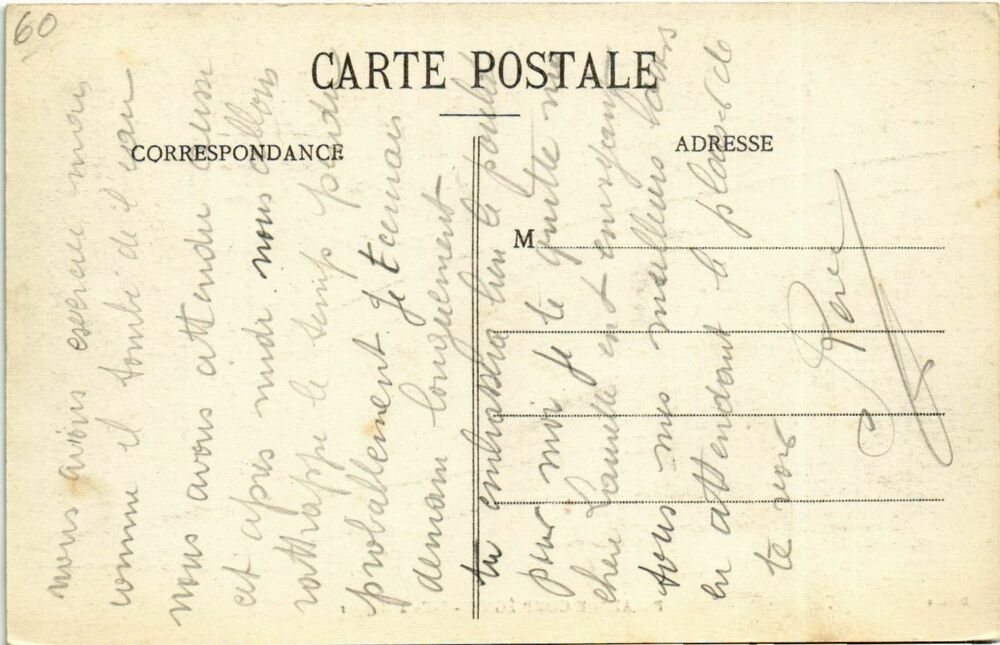 60
CARTE POSTALE
CORRESPONDANCE
ADRESSE
M
nous avions exercice mais
comme il tombe de l'eau
nous avons attendu
et après midi nous allons
rattrappe le temps perdu
probablement. Je t'ecrirais
demain longuement
tu embrassera bien la
pour moi je te quitte ma
chère en t envoyant
tous mes meilleurs
en attendant le plaisir de
te voir